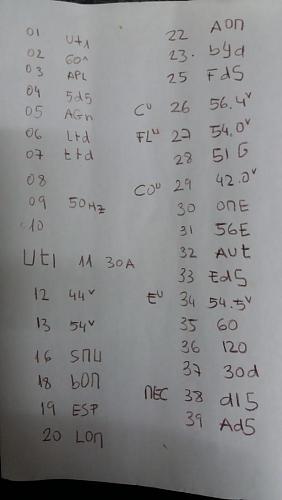 01 Ut1
02 60^
03 APL
04 5d5
05 AGn
06 Ltd
07 ttd
08
09 50HZ
10
Ut1 11 30A
12 44V
13 54V
16 SΠU
18 bOΠ
19 ESP
20 LOΠ
22 AOΠ
23. byd
25 FdS
CU 26 56.4V
FLU 27 54.0V
28 51G
COU 29 42.0V
30 OΠE
31 56E
32 AUt
33 EdS
EU 34 54.5V
35 60
36 120
37 30d
ΠEC 38 dI5
39 Ad5